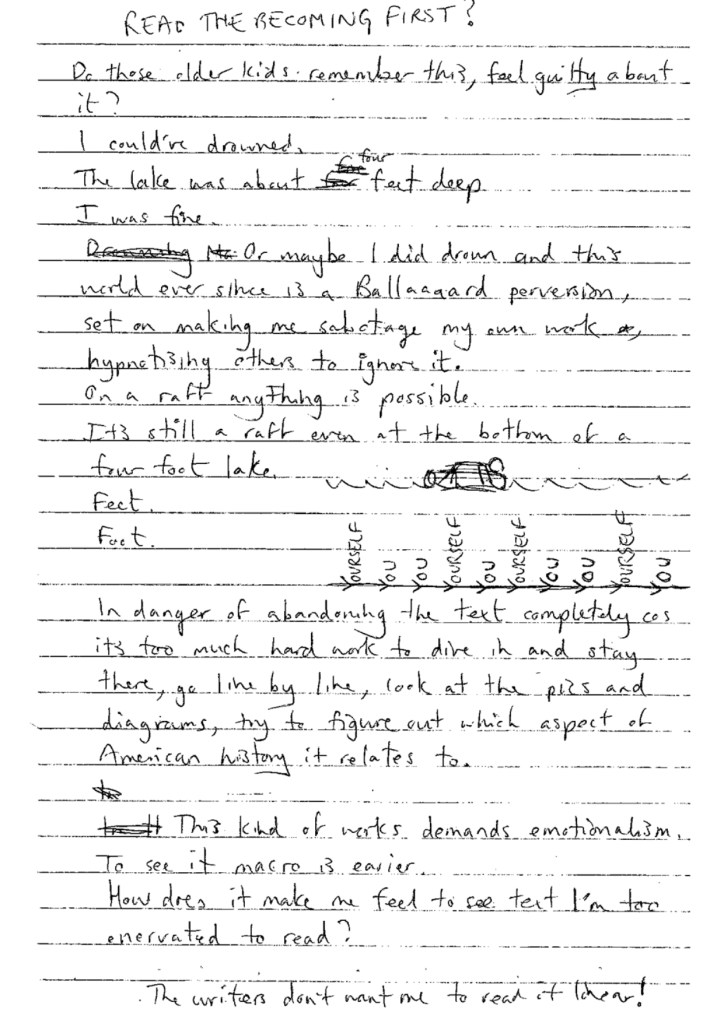 READ THE BECOMING FIRST?
Do those older kids remember this, feel guilty about
it?
I could've drowned.
The lake was about four feet deep.
I was fine.
Or maybe I did drown and this
world ever since is a Ballaaaard perversion,
set on making me sabotage my own work,
hypnotising others to ignore it.
On a raft anything is possible.
It's still a raft even at the bottom of a
four foot lake.
Feet.
Foot.
YOURSELF YOU YOU YOURSELF YOU YOURSELF YOU YOU YOURSELF YOU
In danger of abandoning the text completely cos
it's too much hard work to dive in and stay
there, go line by line, look at the pics and
diagrams, try to figure out which aspect of
American history it relates to.
This kind of works demands emotionalism.
To see it macro is easier.
How does it make me feel to see text I'm too
enervated to read?
The writers don't want me to read it linear!